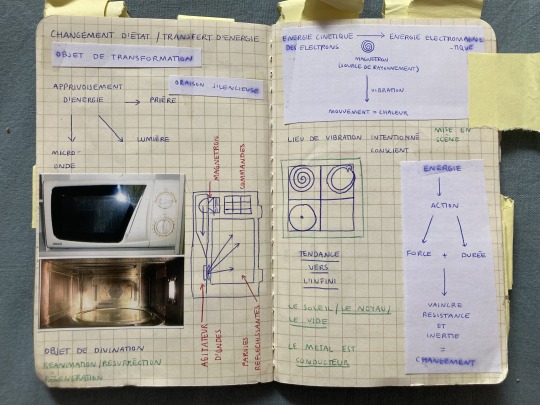 CHANGEMENT D'ÉTAT / TRANSFERT D'ÉNERGIE
OBJET DE TRANSFORMATION
ORAISON SILENCIEUSE
APPRIVOISEMENT
D'ÉNERGIE → PRIÈRE
LUMIÈRE
MICRO-
ONDE
MAGNETRON
COMMANDES
AGITATEUR
D'ONDES
PAROIES
REFLECHISSANTES
OBJET DE DIVINATION
REANIMATION / RESURRECTION
REGENERATION
ENERGIE CINETIQUE → ENERGIE ELECTROMAGNE
DES ELECTRONS -TIQUE
MAGNETRON
(SOURCE DE RAYONNEMENT)
VIBRATION
MOUVEMENT = CHALEUR
LIEU DE VIBRATION INTENTIONNÉ
CONSCIENT
MISE EN
SCÈNE
TENDANCE
VERS
L'INFINI
LE SOLEIL / LE NOYAU /
LE VIDE
LE METAL EST
CONDUCTEUR
ENERGIE
ACTION
FORCE + DURÉE
VAINCRE
RESISTANCE
ET
INERTIE
=
CHANGEMENT